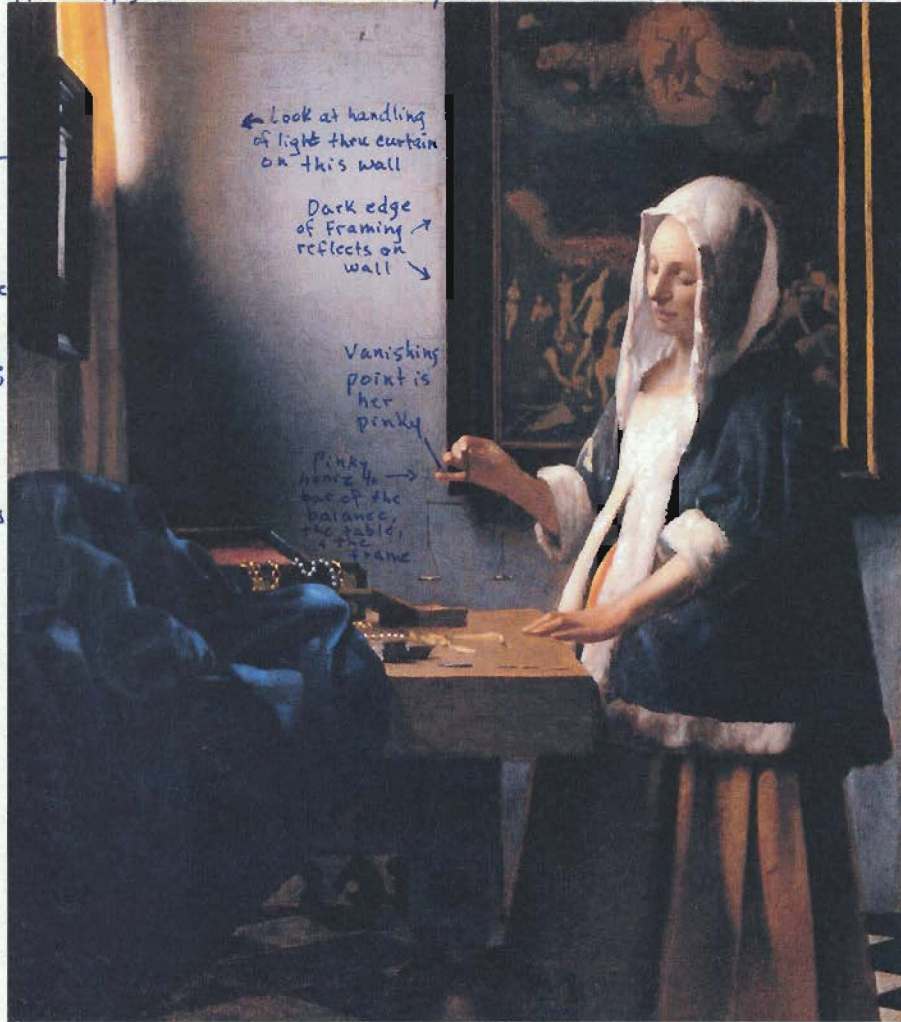 ← Look at handling
of light thru curtain
on this wall
Dark edge
of Framing
reflects on
wall
Vanishing
point is
her
pinky
Pinky →
horiz to
bar of the
balance,
the table,
& the
frame